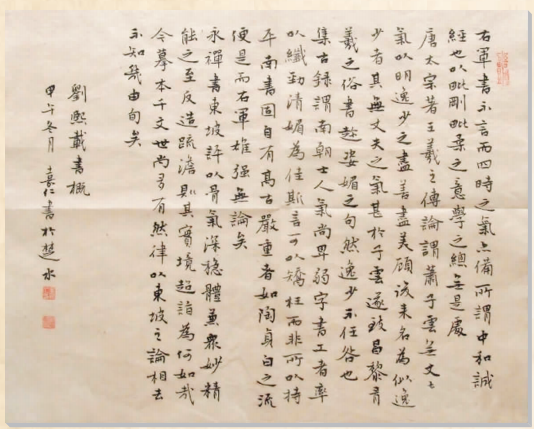 右軍書不言而四時之氣亦備所謂中和誠
經也以毗剛毗柔之意學之總無是處
唐太宗著王羲之傳論謂蕭子雲無丈
氣以明逸少之盡善盡美顧後來名為似逸
少者其無丈夫之氣甚於子雲遂致昌黎有
羲之俗書趁姿媚之句然逸少不任咎也
集古錄謂南朝士人氣尚卑弱字書工者率
以纖勁清媚為佳斯言可以矯枉而非所以持
平南書固自有高古嚴重者如陶貞白之流
便是而右軍雄強無論矣
永禪書東坡評以骨氣深穩體兼眾妙精
能之至反造疏澹則其實境超詣為何如哉
今摹本千文世尚多有然律以東坡之論相去
不知幾由旬矣
劉熙載書概
甲午冬月 嘉仁書於楚水